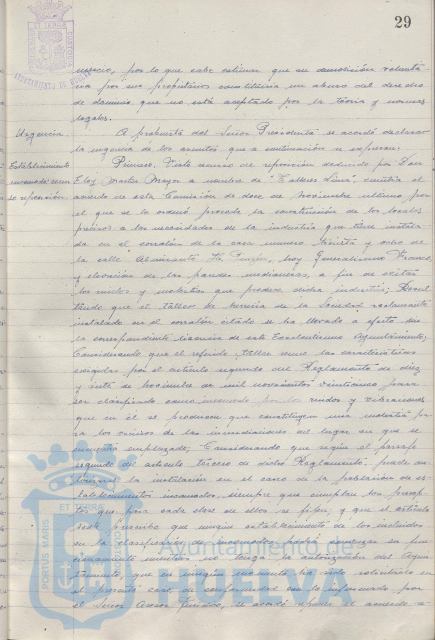 29
nuncio, por lo que cabe estimar que su demolición volunta-
ria por sus propietarios constituiría un abuso del derecho
de dominio que no está aceptado por la teoría y normas
legales.
Urgencia.
A propuesta del Señor Presidente se acordó declarar
la urgencia de los asuntos que a continuación se expresan:
Establecimiento
incomodo recur-
so reposición.
Primero. Visto recurso de reposición deducido por Don
Eloy Martín Mayor a nombre de "Talleres Lima", contra el
acuerdo de esta Comisión de doce de Noviembre último por
el que se le ordenó proceda la construcción de los locales
precisos a las necesidades de la industria que tiene instala-
da en el corralón de la casa número treinta y ocho de
la calle Almirante H. Pinzón, hoy Generalísimo Franco,
y elevación de las paredes medianeras, a fin de evitar
los ruidos y molestias que produce dicha industria; Resul-
tando que el taller de herrería de la Sociedad reclamante
instalado en el corralón citado se ha llevado a efecto sin
la correspondiente licencia de este Excelentísimo Ayuntamiento;
Considerando que el referido taller reune las características
exigidas por el artículo segundo del Reglamento de diez
y siete de Noviembre de mil novecientos veinticinco para
ser clasificado como incomodo por los ruidos y vibraciones
que en él se producen que constituyen una molestia pa-
ra los vecinos de las inmediaciones del lugar en que se
encuentra emplazado; Considerando que según el párrafo
segundo del artículo tercero de dicho Reglamento, puede au-
torizarse la instalación en el casco de la población de es-
tablecimientos incomodos, siempre que cumplan los precep-
tos que para cada clase de ellos se fijen, y que el artículo
sexto prescribe que ningún establecimiento de los incluidos
en la clasificación de incomodos podrá comenzar su fun-
cionamiento mientras no tenga la autorización del Ayun-
tamiento, que en ningún momento ha sido solicitada en
el presente caso, de conformidad con lo informado por
el Señor Asesor Jurídico, se acordó reponer el acuerdo re-
Ayuntamiento de
HUELVA
PORTUS MARIS
ET TERRAE
CUSTODIA
AYUNTAMIENTO DE HUELVA